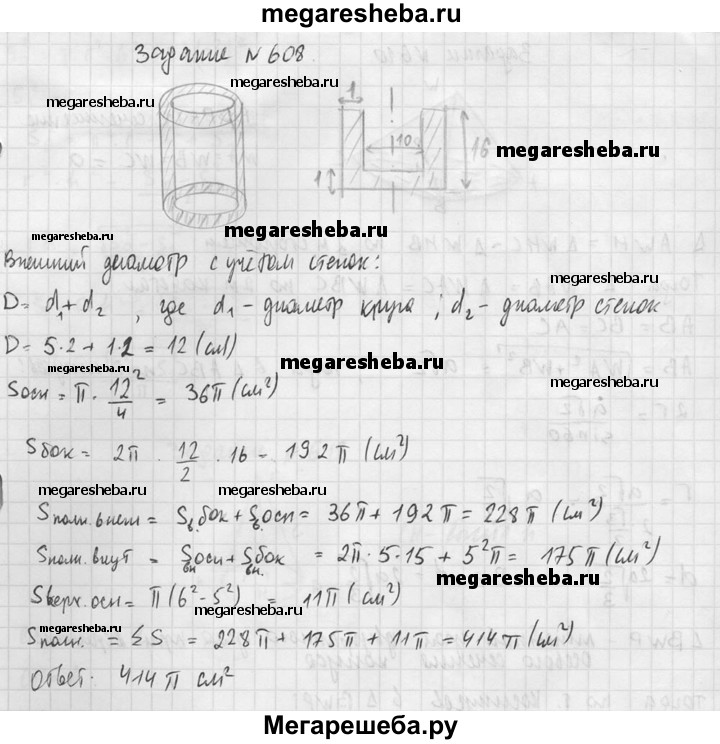 megaresheba.ru
Задание №608
megaresheba.ru
megaresheba.ru
1
10
16
megaresheba.ru
1
megaresheba.ru
megaresheba.ru
Внешний диаметр с учётом стенок:
megaresheba.ru
D = d₁ + d₂ , где d₁ - диаметр круга ; d₂ - диаметр стенок
D = 5·2 + 1·2 = 12 (см)
megaresheba.ru
megaresheba.ru
megaresheba.ru
Sосн = π · 12²/4 = 36π (см²)
Sбок = 2π · 12/2 · 16 - 192π (см²)
megaresheba.ru
megaresheba.ru
Sполн.внеш = Sбок + Sосн = 36π + 192π = 228π (см²)
Sполн.внут = Sосн + Sбок = 2π·5·15 + 5²π = 175π (см²)
вн. вн.
megaresheba.ru
Sверх.осн = π(6² - 5²) = 11π (см²)
megaresheba.ru
megaresheba.ru
Sполн. = ΣS = 228π + 175π + 11π = 414π (см²)
Ответ. 414π см²
megaresheba.ru
Мегарешеба.ру